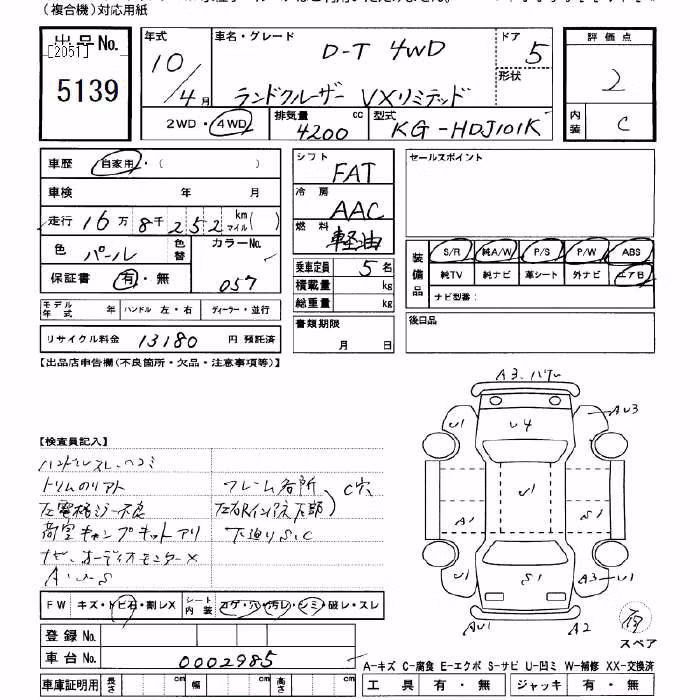 (複合機)対応用紙
出品No.
[2051]
5139
年式
10/4月
車名・グレード
D-T 4WD
ランドクルーザー VXリミテッド
ドア
5
形状
2WD・4WD
排気量
4200 cc
型式
KG-HDJ101K
評価点
2
内装
C
車歴 自家用・( )
車検 年 月
走行 16万 8千 252 km マイル( )
色 パール
色替
カラーNo.
057
保証書 有・無
モデル年式 年 ハンドル 左・右 ディーラー・並行
リサイクル料金 13180 円 預託済
シフト
FAT
冷房
AAC
燃料
軽油
乗車定員 5 名
積載量 kg
総重量 kg
書類期限
月 日
セールスポイント
装備品
S/R 純A/W P/S P/W ABS
純TV 純ナビ 革シート 外ナビ エアB
ナビ型番:
後日品
【出品店申告欄(不良箇所・欠品・注意事項等)】
【検査員記入】
ハンドルスレ、ヘコミ
トリムのリアト
左電格ミラー不良
荷室キャンプキットアリ
ナビ、オーディオモニター×
A・U・S
フレーム各所
C穴
下廻りS、C
FW キズ・トビ石・割レX
シート内装 コゲ・穴・汚レ・シミ・破レ・スレ
登録No.
車台No. 0002985
車庫証明用 長さ cm 幅 cm 高さ cm
A3.バワレ
AU3
U1
U4
U1
A1
S1
U1
S1
A3 U1
AU1
A2
スペア
A-キズ C-腐食 E-エクボ S-サビ U-凹ミ W-補修 XX-交換済
工具 有・無 ジャッキ 有・無